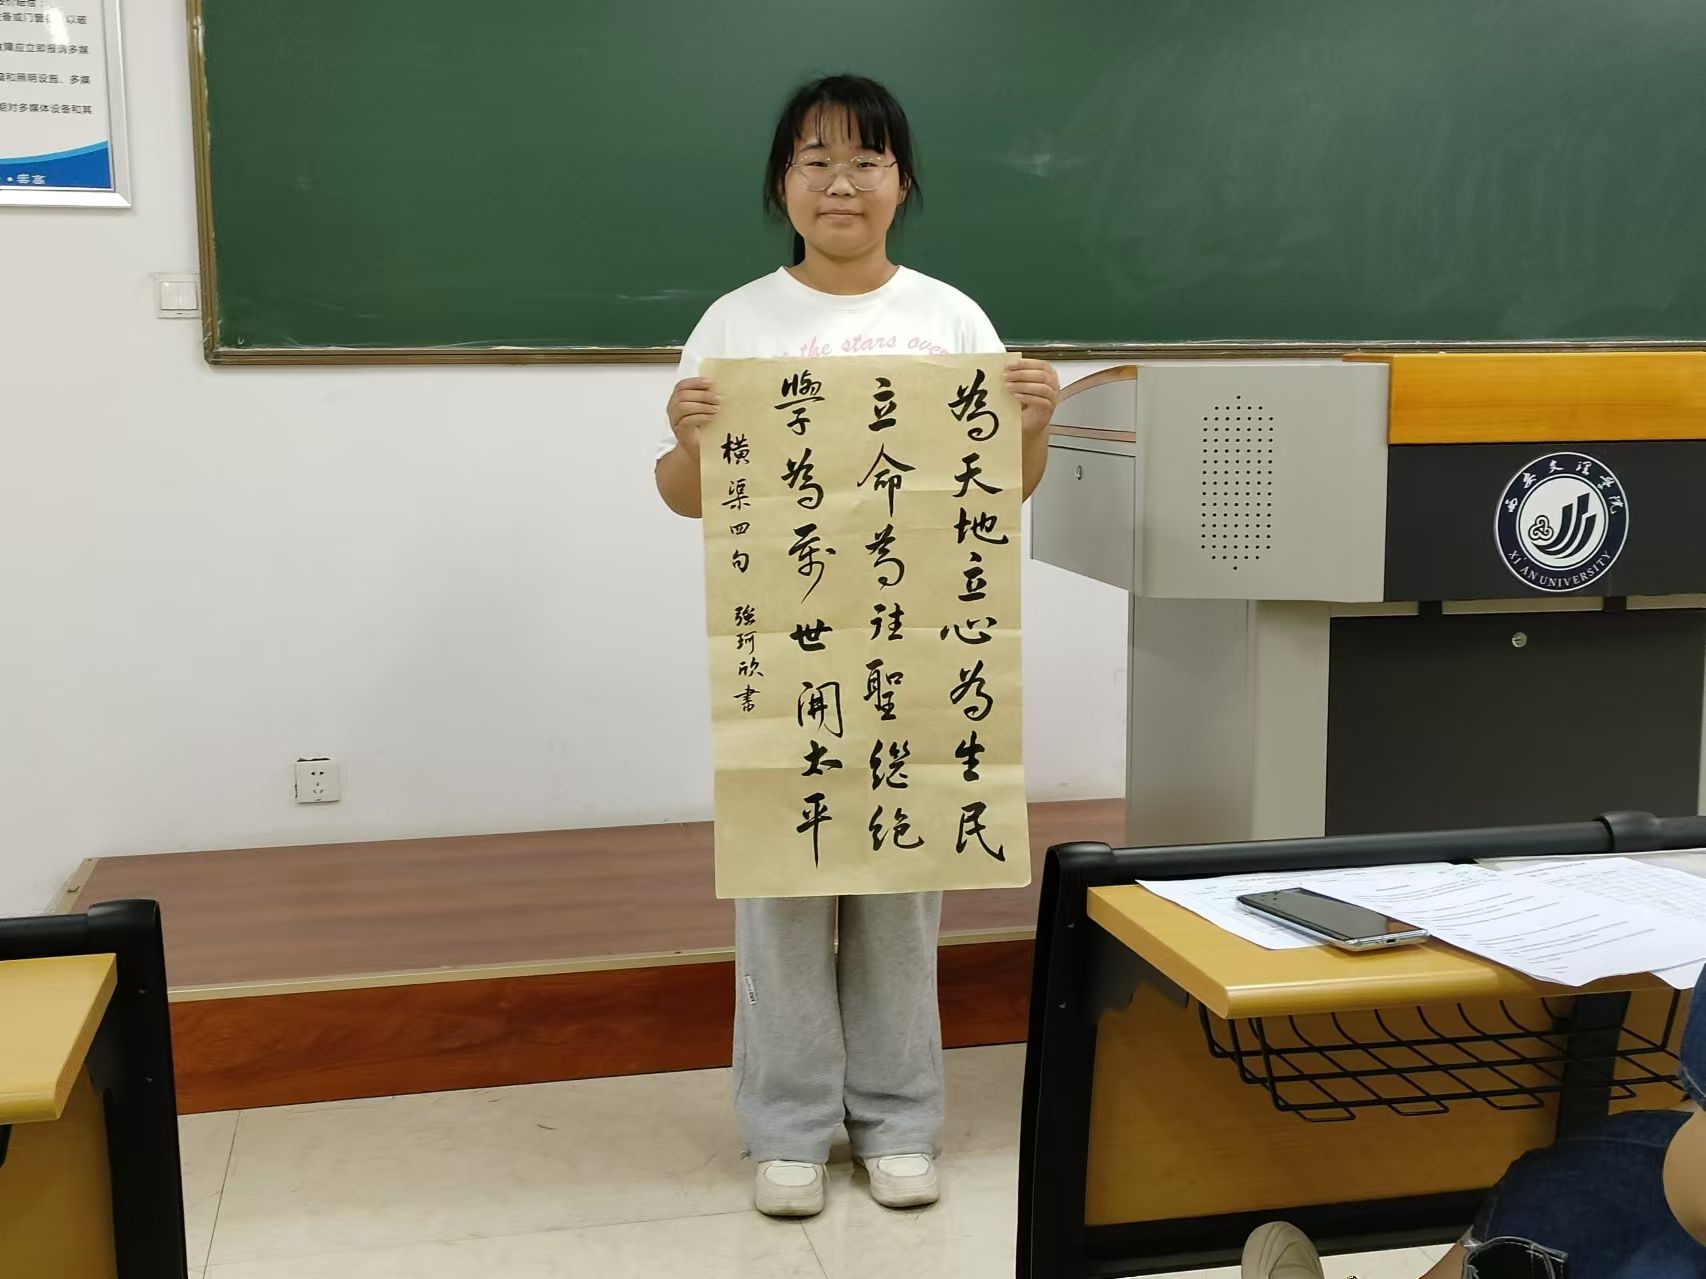 為天地立心為生民
立命為往聖繼絶
學為萬世開太平
橫渠四句 強珂欣書
the stars over
西安文理学院
XI'AN UNIVERSITY
障应立即报请多媒
和照明设施、多媒
期对多媒体设备和其